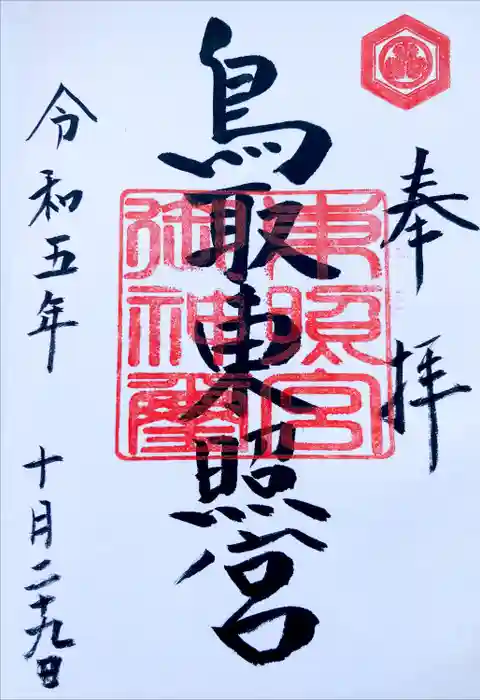 奉拝
鳥取東照宮
東照宮
御神璽
令和五年
十月二十九日